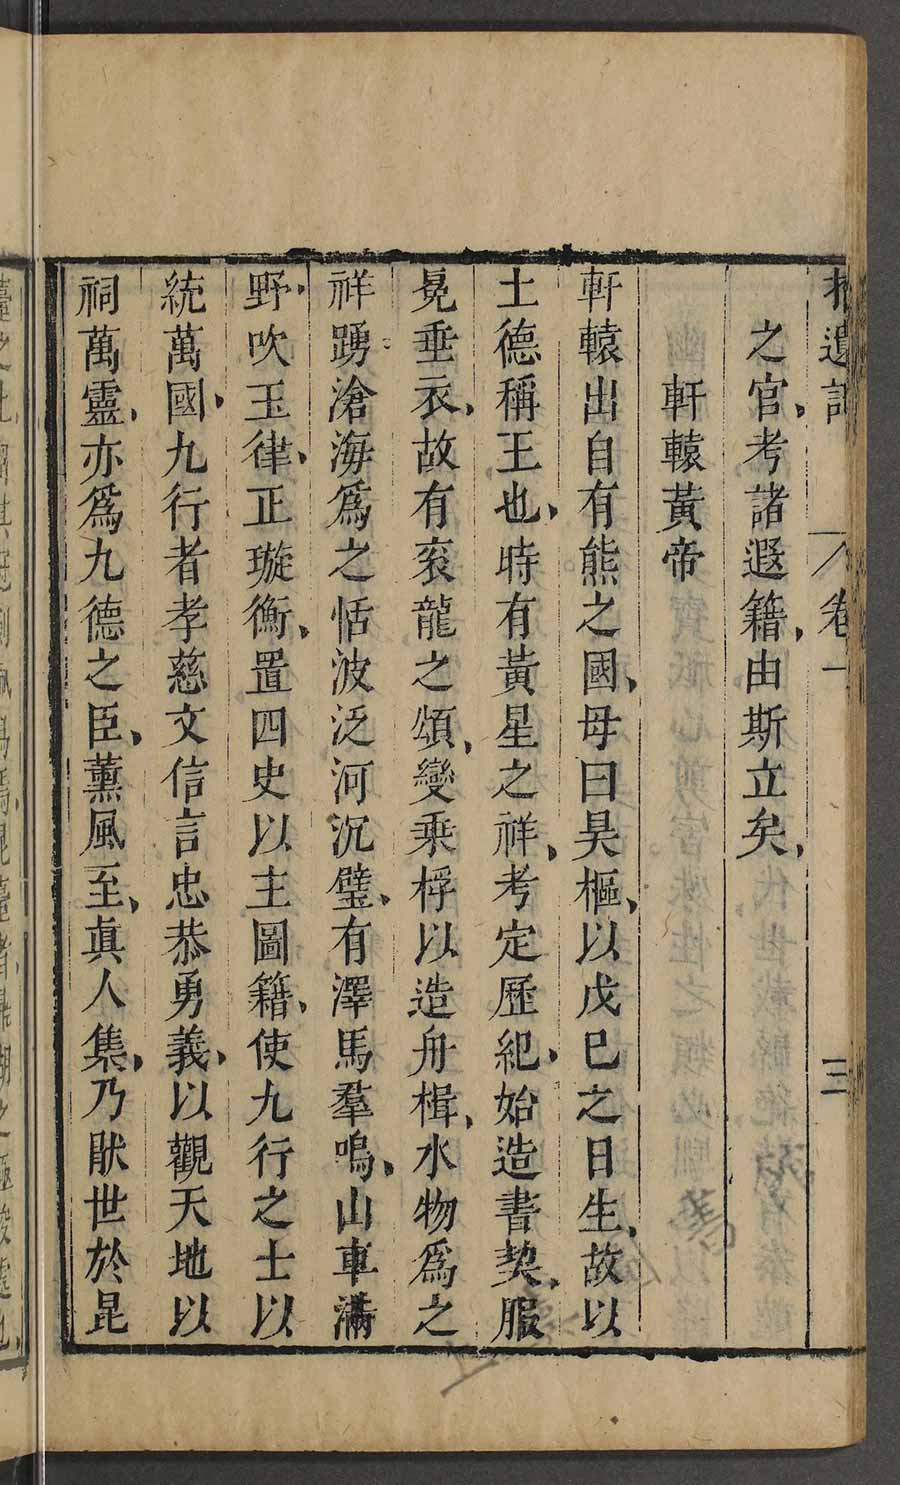 拾遺記 卷一 三
之官、考諸遐籍、由斯立矣、
軒轅黃帝
軒轅出自有熊之國、母曰昊樞、以戊巳之日生、故以
土德稱王也、時有黃星之祥、考定歷紀、始造書契、服
冕垂衣、故有袞龍之頌、變乘桴以造舟楫、水物爲之
祥踴、滄海爲之恬波泛河沉璧、有澤馬羣鳴、山車滿
野、吹玉律、正璇衡、置四史以主圖籍、使九行之士以
統萬國、九行者孝慈文信言忠恭勇義、以觀天地以
祠萬靈、亦爲九德之臣、薰風至、眞人集、乃猒世於昆